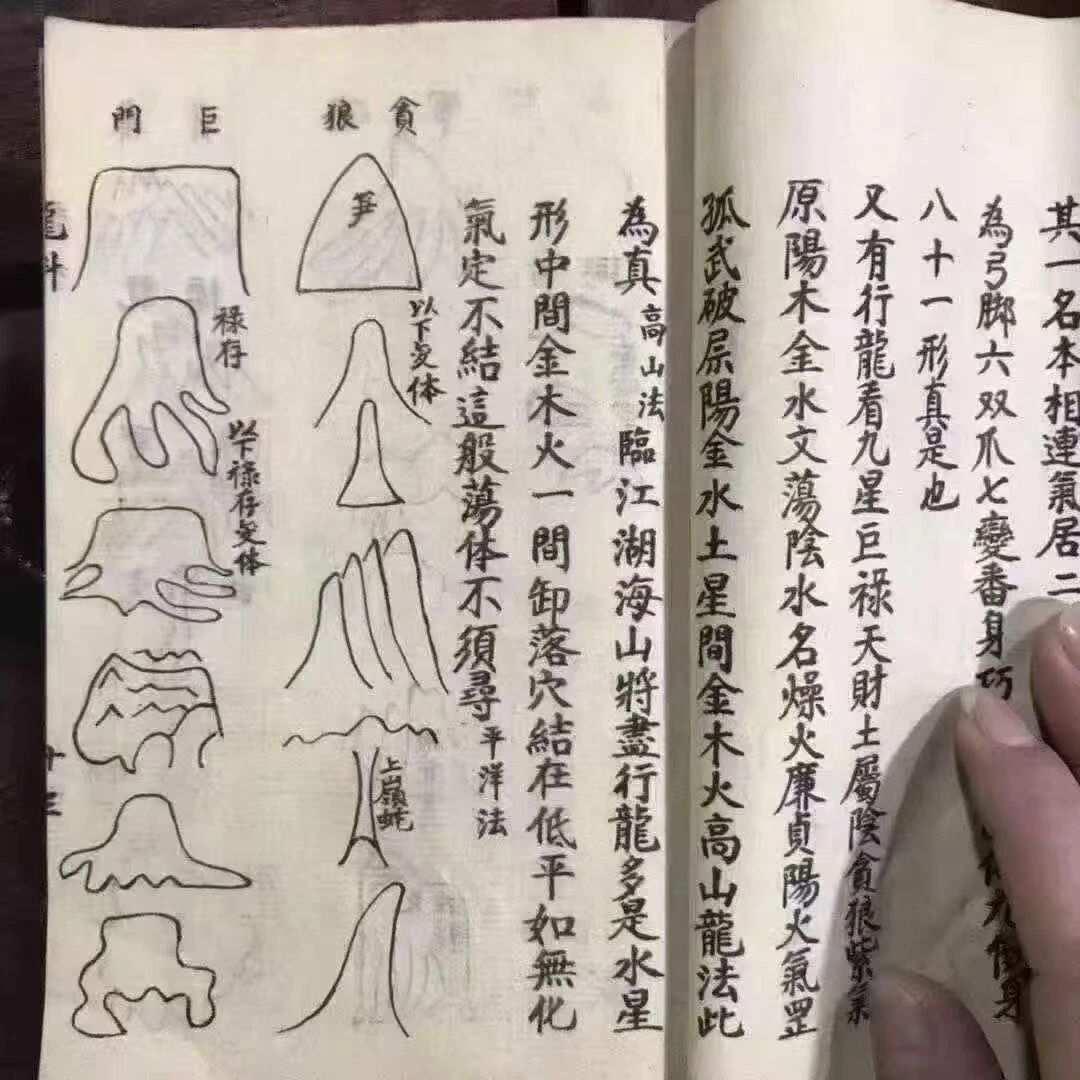 其一名本相連氣居二
為弓脚六双爪七變番身巧
八十一形真是也
又有行龍看九星巨祿天財土屬陰貪狼紫氣
原陽木金水文蕩陰水名燥火廉貞陽火氣罡
孤武破屎陽金水土星間金木火高山龍法此
為真 高山法 臨江湖海山將盡行龍多是水星
形中間金木火一間卸落穴結在低平如無化
氣定不結這般蕩体不須尋 平洋法
貪狼
笋
以下变体
上嶺蛇
巨門
禄存
以下禄存变体
龍